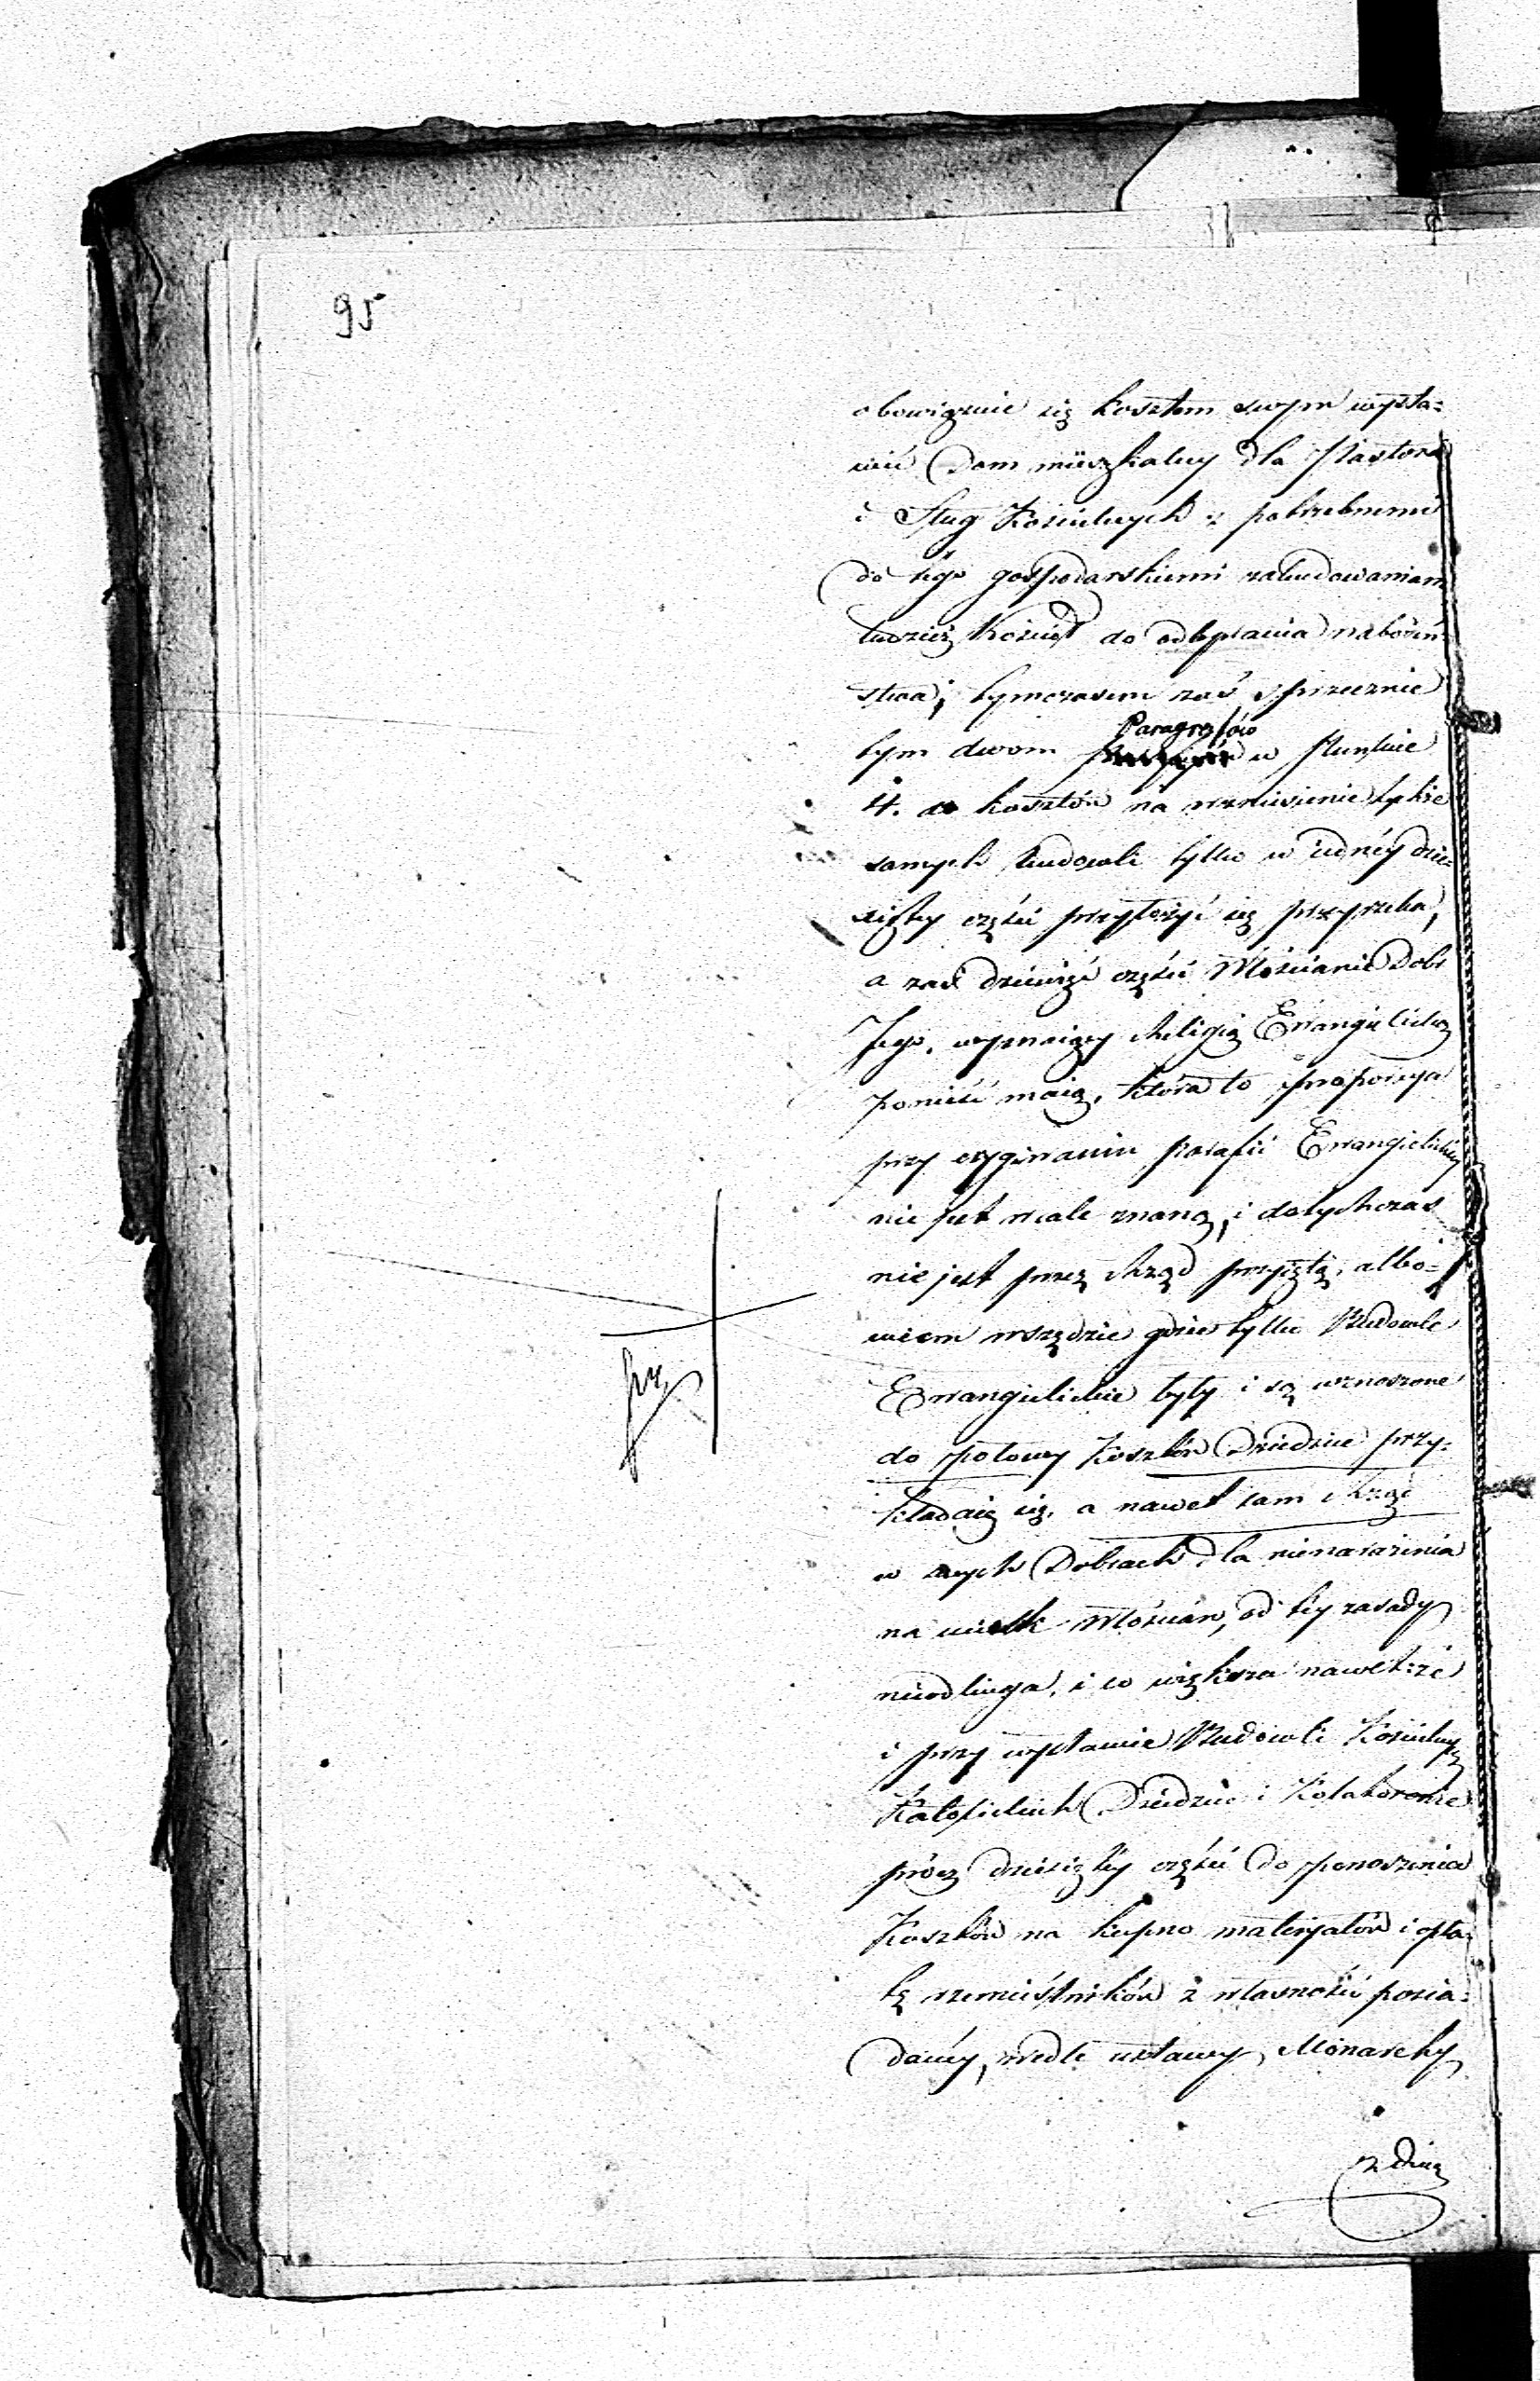 95
obowiązuie się kosztem swym wysta=
wić Dom mieszkalny dla Pastora
i Sług Kościelnych z potrzebnemi
do tego gospodarskiemi zabudowaniam
tudzież Kościół do odbywania nabożeń=
stwa; tymczasem zaś sprzecznie
tym dwom Paragrafów w Punkcie
4. do kosztów na wzniesienie tychże
samych budowli tylko w iednéy dzie=
siątey części przyłożyć się przyrzeka,
a zaś dziewięć części Włościanie Dobr
Jego, wyznaiący Religią Ewangielicką
ponieść maią, która to proporcya
przy erygowaniu parafii Ewangielickiey
nie jest wcale znaną, i dotychczas
nie jest przez Rząd przyiętą, albo=
wiem wszędzie gdzie tylko Budowle
Ewangielickie były i są wznoszone
do połowy Kosztów Dziedzice przy=
kładaią się, a nawet sam Rząd
w swych Dobrach dla nienarażenia
na ucisk Włościan, od tey zasady
nieodstępuie, i co większa nawet że
i przy wystawie Budowli Kościelnych
Katolickich Dziedzice i Kolatorowie
prócz dziesiątey części do ponoszenia
Kosztów na kupno materyałów i opła=
tę rzemieślników z własności posia=
daney, wedle ustawy Monarchy
z dnia